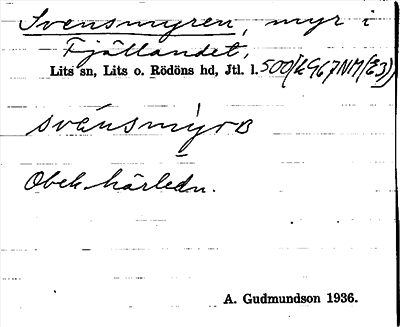 Svensmyren, myr i
Fjällandet,
Lits sn, Lits o. Rödöns hd, Jtl. l.
svensmỳrB
Obek. härledn.
A. Gudmundson 1936.